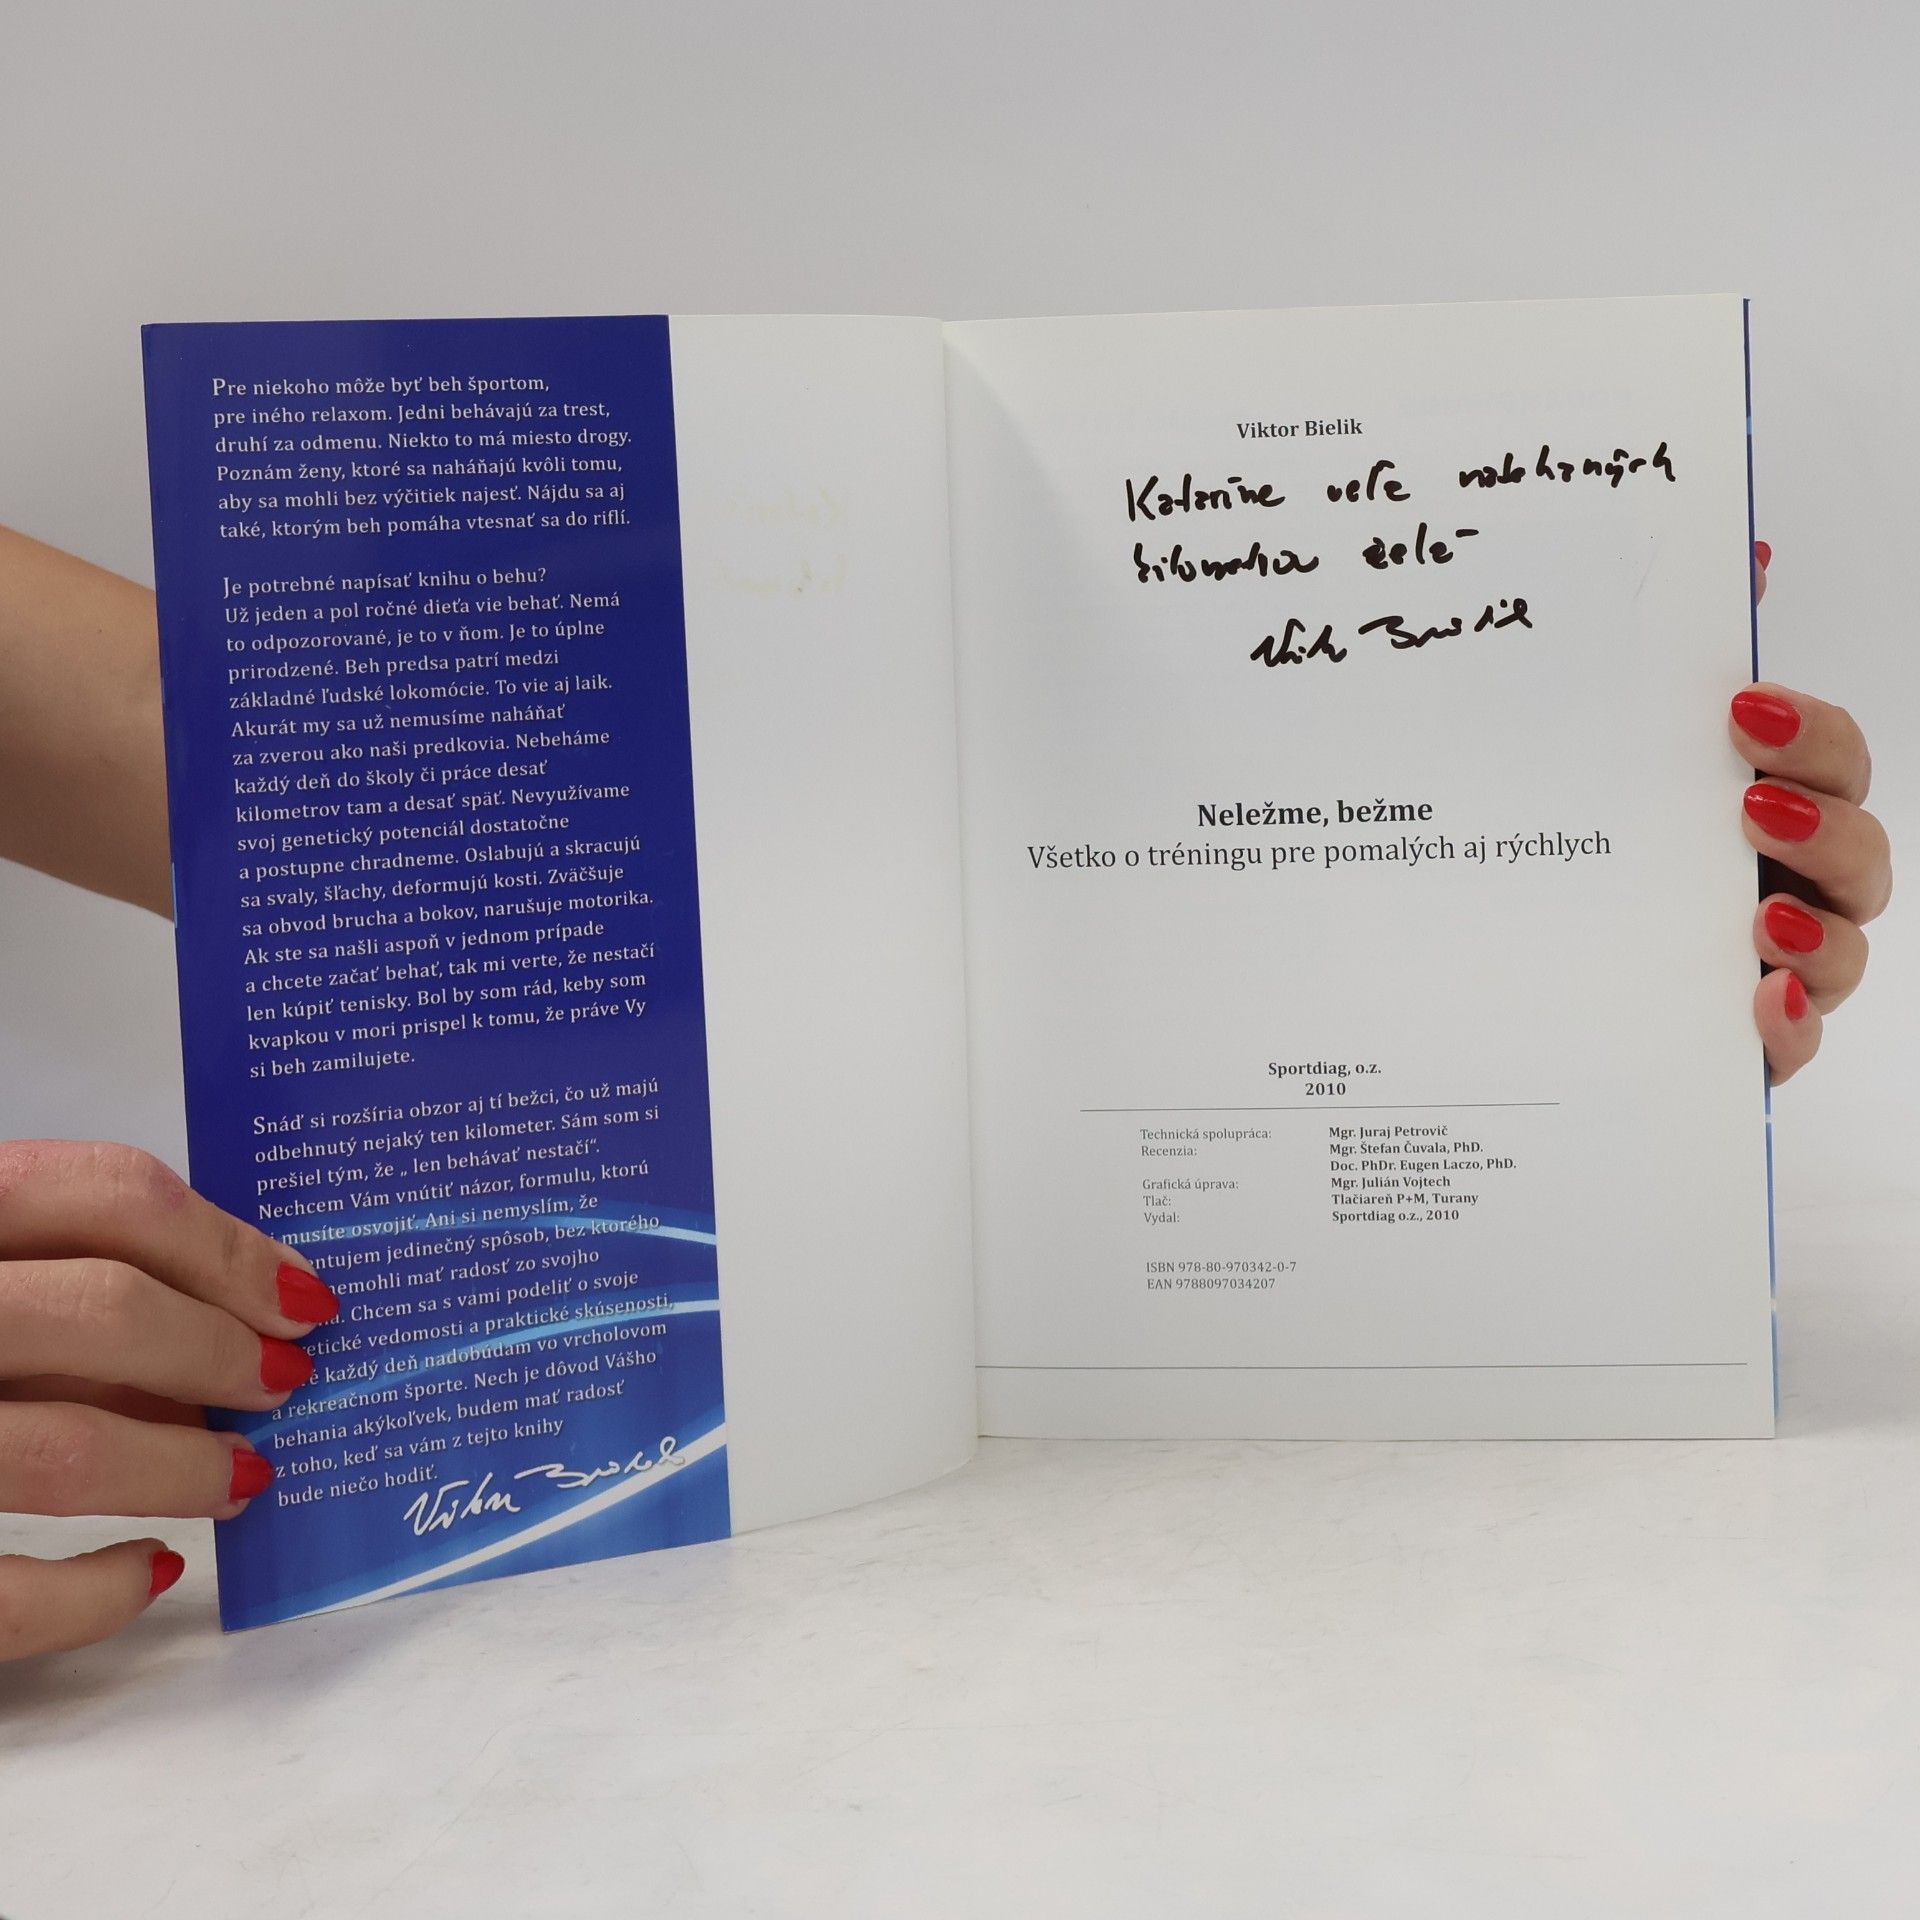 Pre niekoho môže byť beh športom,
pre iného relaxom. Jedni behávajú za trest,
druhí za odmenu. Niekto to má miesto drogy.
Poznám ženy, ktoré sa naháňajú kvôli tomu,
aby sa mohli bez výčitiek najesť. Nájdu sa aj
také, ktorým beh pomáha vtesnať sa do riflí.
Je potrebné napísať knihu o behu?
Už jeden a pol ročné dieťa vie behať. Nemá
to odpozorované, je to v ňom. Je to úplne
prirodzené. Beh predsa patrí medzi
základné ľudské lokomócie. To vie aj laik.
Akurát my sa už nemusíme naháňať
za zverou ako naši predkovia. Nebeháme
každý deň do školy či práce desať
kilometrov tam a desať späť. Nevyužívame
svoj genetický potenciál dostatočne
a postupne chradneme. Oslabujú a skracujú
sa svaly, šľachy, deformujú kosti. Zväčšuje
sa obvod brucha a bokov, narušuje motorika.
Ak ste sa našli aspoň v jednom prípade
a chcete začať behať, tak mi verte, že nestačí
len kúpiť tenisky. Bol by som rád, keby som
kvapkou v mori prispel k tomu, že práve Vy
si beh zamilujete.
Snáď si rozšíria obzor aj tí bežci, čo už majú
odbehnutý nejaký ten kilometer. Sám som si
prešiel tým, že „ len behávať nestačí“.
Nechcem Vám vnútiť názor, formulu, ktorú
musíte osvojiť. Ani si nemyslím, že
jedinečný spôsob, bez ktorého
nemohli mať radosť zo svojho
Chcem sa s vami podeliť o svoje
vedomosti a praktické skúsenosti,
každý deň nadobúdam vo vrcholovom
a rekreačnom športe. Nech je dôvod Vášho
behania akýkoľvek, budem mať radosť
z toho, keď sa vám z tejto knihy
bude niečo hodiť.
Viktor Bielik
Viktor Bielik
Kataríne veľa nabehaných
kilometrov želá
Viktor Bielik
Neležme, bežme
Všetko o tréningu pre pomalých aj rýchlych
Sportdiag, o.z.
2010
Technická spolupráca: Mgr. Juraj Petrovič
Recenzia: Mgr. Štefan Čuvala, PhD.
Doc. PhDr. Eugen Laczo, PhD.
Grafická úprava: Mgr. Julián Vojtech
Tlač: Tlačiareň P+M, Turany
Vydal: Sportdiag o.z., 2010
ISBN 978-80-970342-0-7
EAN 9788097034207